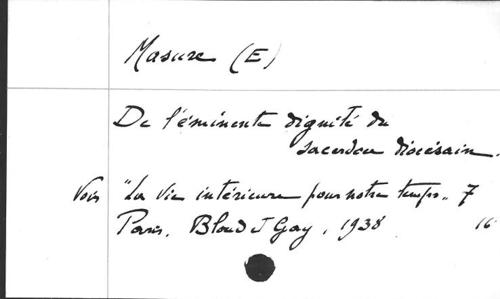 Masure (E)
De l'éminente dignité du
sacerdoce diocésain.
Voir "La vie intérieure pour notre temps" 7
Paris, Bloud & Gay, 1938 16